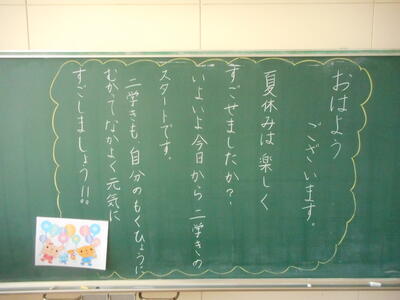 おはよう
ございます。
夏休みは楽しく
すごせましたか？
いよいよ今日から二学きの
スタートです。
二学きも、自分のもくひょうに
むかってなかよく元気に
すごしましょう!!